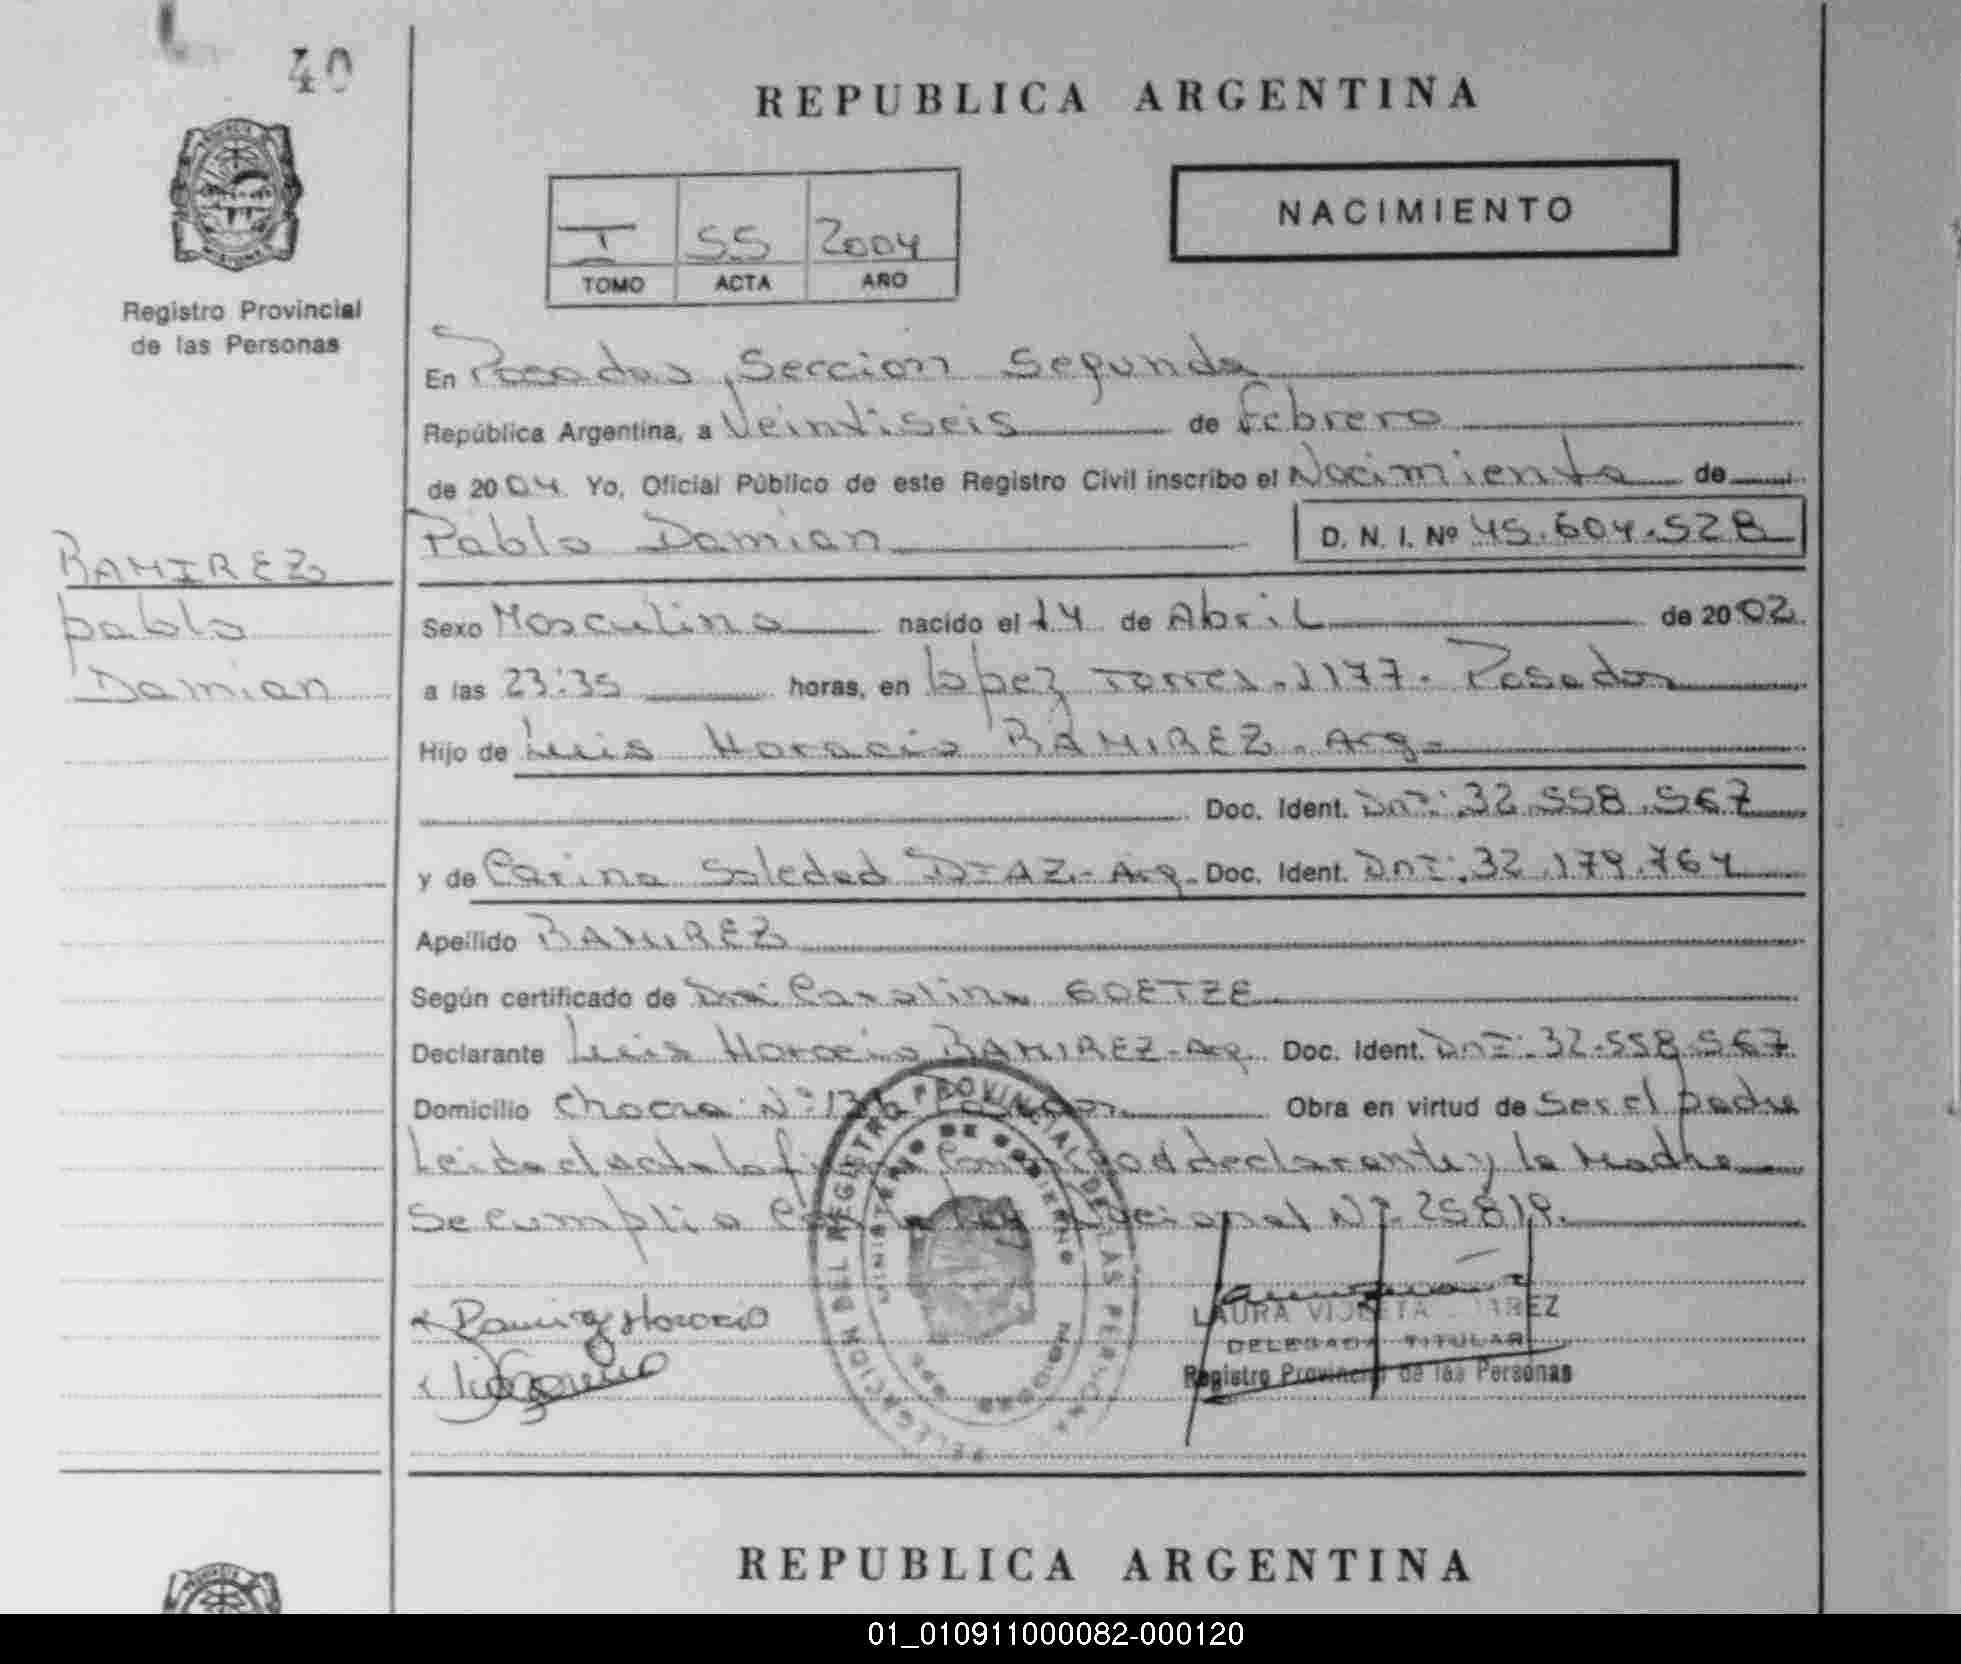 40
REPUBLICA ARGENTINA
NACIMIENTO
I 55 2004
TOMO ACTA AÑO
Registro Provincial
de las Personas
En Posadas, Seccion Segunda
República Argentina, a Veintiseis de Febrero
de 2004 Yo, Oficial Público de este Registro Civil inscribo el Nacimiento de
Pablo Damian D. N. I. Nº 45.604.528
RAMIREZ
pablo
Damian
Sexo Masculino nacido el 14 de Abril de 2002
a las 23:35 horas, en Lopez Torres. 1177. Posadas
Hijo de Luis Horacio RAMIREZ. Arg.
Doc. Ident. DNI: 32.558.567
y de Carina Soledad DIAZ - Arg. Doc. Ident. DNI: 32.179.764
Apellido RAMIREZ
Según certificado de Dra. Carolina GOETZE
Declarante Luis Horacio RAMIREZ - Arg. Doc. Ident. DNI: 32.558.567
Domicilio Chacra Nº Obra en virtud de Ser el padre
Leida el acta la Conmigo el declarante y la Madre
Se cumplio Nacional Nº 25819.
Ramirez Horacio
LAURA
DELEGADA TITULAR
Registro Provincial de las Personas
DELEGACION DEL REGISTRO PROVINCIAL DE LAS PERSONAS
MINISTERIO DE GOBIERNO
REPUBLICA ARGENTINA
01_010911000082-000120